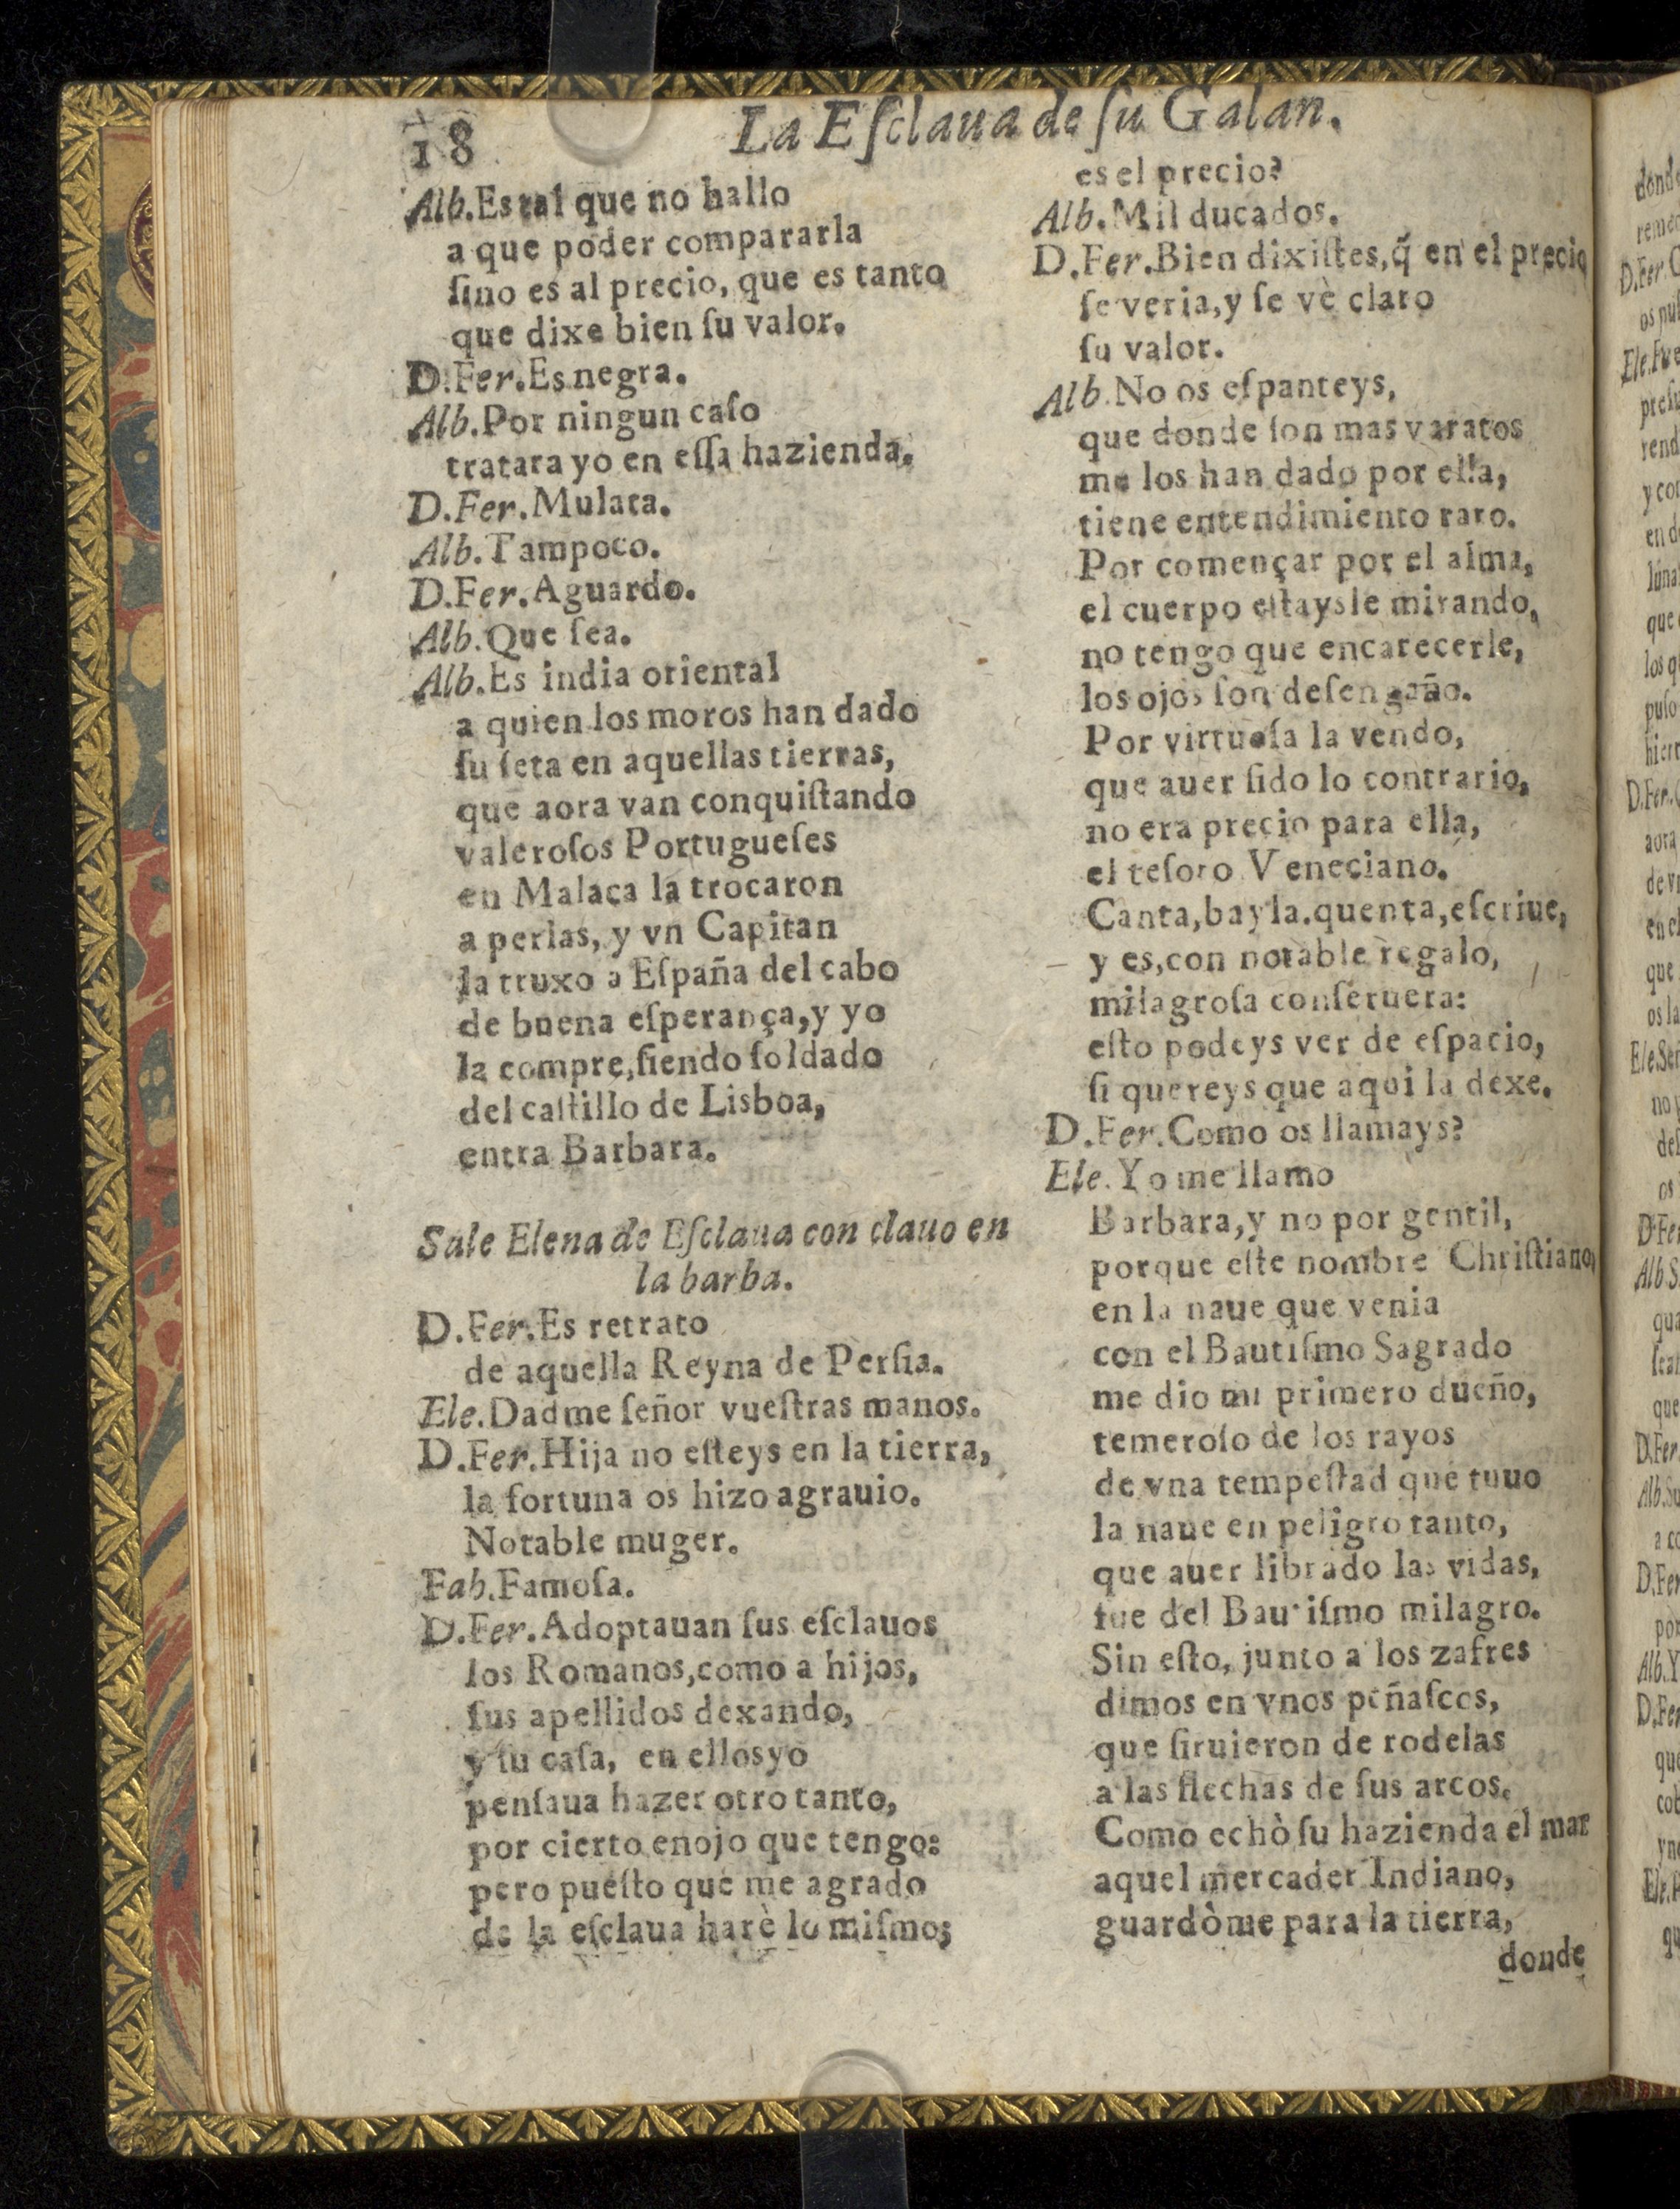 18
La Eſclaua de ſu Galan.
Alb.Es tal que no hallo
a que poder compararla
ſino es al precio, que es tanto
que dixe bien ſu valor.
D.Fer.Es negra.
Alb.Por ningun caſo
tratara yo en eſſa hazienda.
D.Fer.Mulata.
Alb.Tampoco.
D.Fer.Aguardo.
Alb.Que ſea.
Alb.Es india oriental
a quien los moros han dado
ſu ſeta en aquellas tierras,
que aora van conquiſtando
valeroſos Portugueſes
en Malaca la trocaron
a perlas, y vn Capitan
la truxo a Eſpaña del cabo
de buena eſperança, y yo
la compre, ſiendo ſoldado
del caſtillo de Lisboa,
entra Barbara.
Sale Elena de Eſclaua con clauo en
la barba.
D.Fer.Es retrato
de aquella Reyna de Perſia.
Ele.Dadme ſeñor vueſtras manos.
D.Fer.Hija no eſteys en la tierra,
la fortuna os hizo agrauio.
Notable muger.
Fab.Famoſa.
D.Fer.Adoptauan ſus eſclauos
los Romanos, como a hijos,
ſus apellidos dexando,
y ſu caſa, en ellos yo
penſaua hazer otro tanto,
por cierto enojo que tengo:
pero pueſto que me agrado
de la eſclaua harè lo miſmo;
es el precio?
Alb.Mil ducados.
D.Fer.Bien dixiſtes, q̃ en el precio
ſe veria, y ſe vè claro
ſu valor.
Alb.No os eſpanteys,
que donde ſon mas varatos
me los han dado por ella,
tiene entendimiento raro.
Por començar por el alma,
el cuerpo eſtaysle mirando,
no tengo que encarecerle,
los ojos ſon deſengaño.
Por virtuoſa la vendo,
que auer ſido lo contrario,
no era precio para ella,
el teſoro Veneciano.
Canta, bayla. quenta, eſcriue,
y es, con notable regalo,
milagroſa conſeruera:
eſto podeys ver de eſpacio,
ſi quereys que aqui la dexe.
D.Fer.Como os llamays?
Ele.Yo me llamo
Barbara, y no por gentil,
porque eſte nombre Chriſtiano,
en la naue que venia
con el Bautiſmo Sagrado
me dio mi primero dueño,
temeroſo de los rayos
de vna tempeſtad que tuuo
la naue en peligro tanto,
que auer librado las vidas,
fue del Bautiſmo milagro.
Sin eſto, junto a los zafres
dimos en vnos peñaſcos,
que ſiruieron de rodelas
a las flechas de ſus arcos.
Como echò ſu hazienda el mar
aquel mercader Indiano,
guardòme para la tierra,
donde